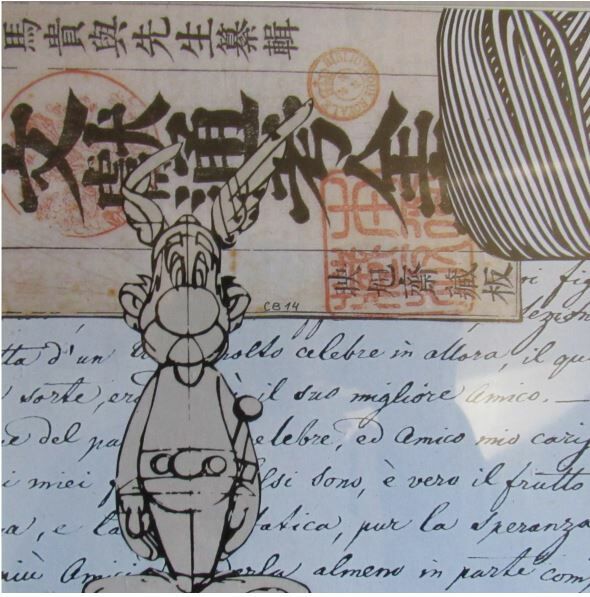 馬貴與先生纂輯
文獻通考全
齋藏板
CB14
fig
lezion
tta d'un molto celebre in allora, il qu
sorte, ero il suo migliore Amico. —
e del pa elebre, ed Amico mio
i miei lsi sono, è vero il frutto
e la tatica, pur la speranza
più Amici erla almeno in parte comp